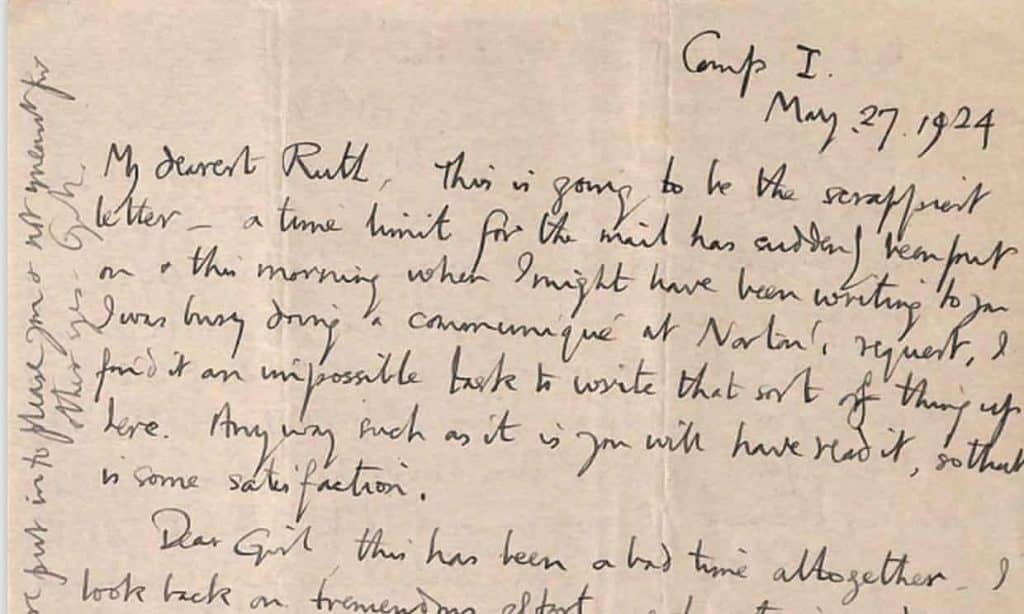 Camp I.
May. 27. 1924
My dearest Ruth, This is going to be the scrappiest
letter – a time limit for the mail has suddenly been put
on & this morning when I might have been writing to you
I was busy doing a communiqué at Norton's request, I
find it an impossible task to write that sort of thing up
here. Anyway such as it is you will have read it, so that
is some satisfaction.
Dear Girl, this has been a bad time altogether – I
look back on tremendous effort
put in to please you & not meant for
other eyes – G.L.M.